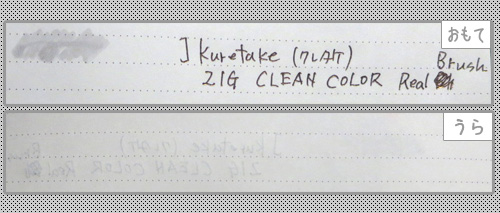 おもて
] Kuretake (クレタケ)
Brush
ZIG CLEAN COLOR Real
うら